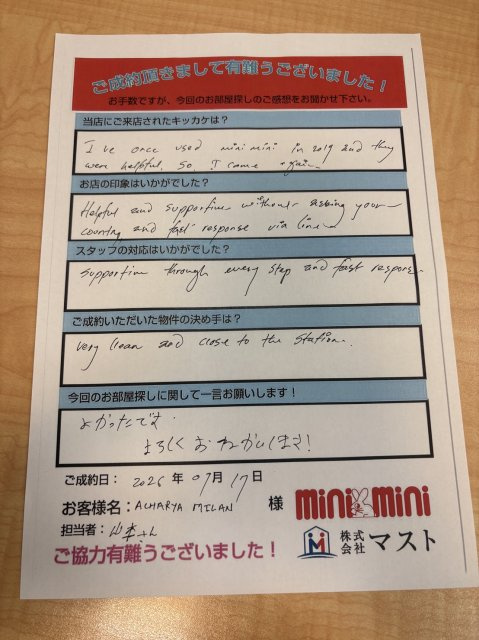 ご成約頂きまして有難うございました！
お手数ですが、今回のお部屋探しのご感想をお聞かせ下さい。
当店にご来店されたキッカケは？
I've once used minimini in 2019 and they
were helpful. So I came again
お店の印象はいかがでした？
Helpful and supportive without asking your
country and fast response via line
スタッフの対応はいかがでした？
supportive through every step and fast response
ご成約いただいた物件の決め手は？
very clean and close to the station.
今回のお部屋探しに関して一言お願いします！
よかったです.
よろしくおねがいします!
ご成約日： 2026 年 07月 17日
お客様名： ACHARYA MILAN 様
担当者： 山本さん
ご協力有難うございました！
mini mini
株式会社 マスト